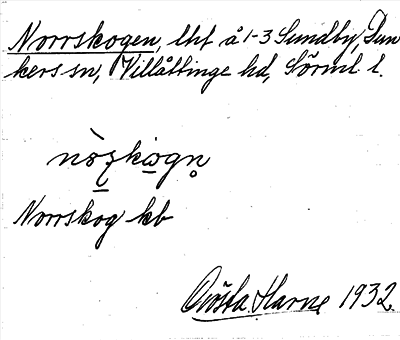 Norrskogen, lht å 1-3 Sundby, Dun
kers sn, Villåttinge hd, Sörml. l.
nòʒkογn̥
Norrskog kb
Gösta Harne 1932.